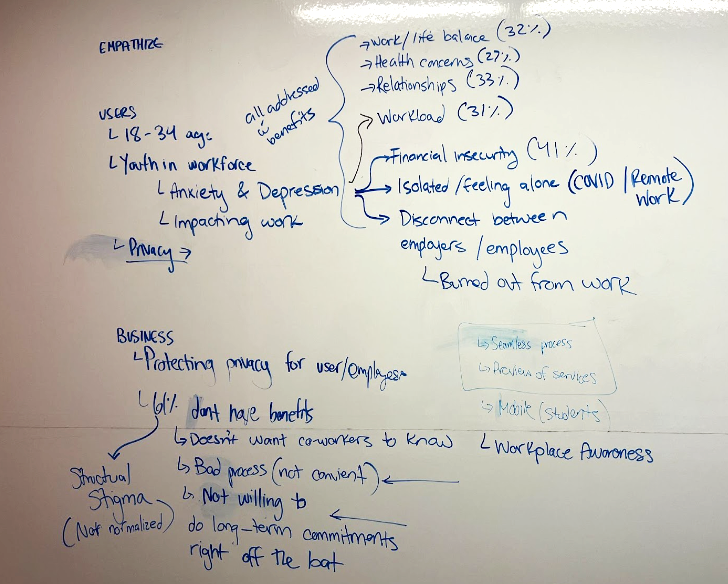 EMPATHIZE
USERS
18-34 age
Youth in workforce
Anxiety & Depression
Impacting work
Privacy →
all addressed
w benefits
→ Work/life balance (32%)
→ Health concerns (27%)
→ Relationships (33%)
Workload (31%)
Financial insecurity (41%)
Isolated/feeling alone (COVID/Remote
Work)
Disconnect between
employers/employees
Burned out from work
BUSINESS
Protecting privacy for user/employees
61% don't have benefits
Doesn't want co-workers to know
Bad process (not convient)
Not willing to
do long-term commitments
right off the bat
Structual
Stigma
(Not normalized)
Seamless process
Preview of services
Mobile (students)
Workplace Awareness